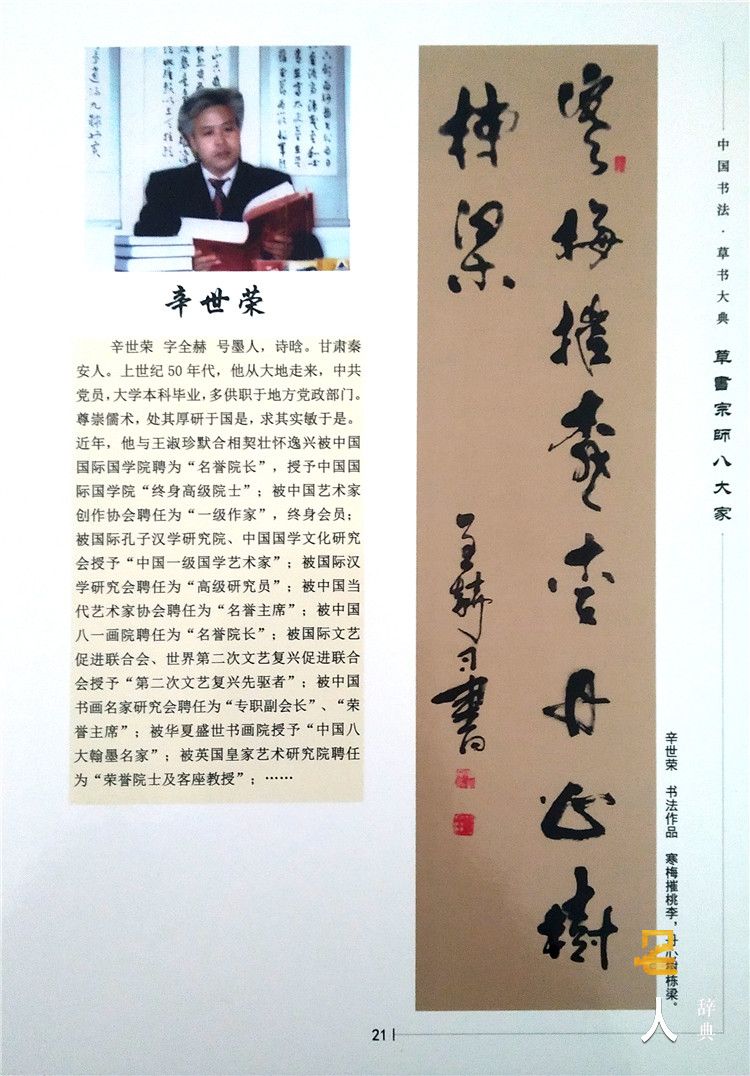 辛世荣
辛世荣 字全赫 号墨人，诗晗。甘肃秦
安人。上世纪50年代，他从大地走来，中共
党员，大学本科毕业，多供职于地方党政部门。
尊崇儒术，处其厚研于国是，求其实敏于是。
近年，他与王淑珍默合相契壮怀逸兴被中国
国际国学院聘为“名誉院长”，授予中国国
际国学院“终身高级院士”；被中国艺术家
创作协会聘任为“一级作家”，终身会员；
被国际孔子汉学研究院、中国国学文化研究
会授予“中国一级国学艺术家”；被国际汉
学研究会聘任为“高级研究员”；被中国当
代艺术家协会聘任为“名誉主席”；被中国
八一画院聘任为“名誉院长”；被国际文艺
促进联合会、世界第二次文艺复兴促进联合
会授予“第二次文艺复兴先驱者”；被中国
书画名家研究会聘任为“专职副会长”、“荣
誉主席”；被华夏盛世书画院授予“中国八
大翰墨名家”；被英国皇家艺术研究院聘任
为“荣誉院士及客座教授”；……
寒梅摧桃李丹心树
栋梁
全赫书
辛世荣 书法作品 寒梅摧桃李，丹心树栋梁。
中国书法·草书大典 草書宗師八大家
21
名人
辞典